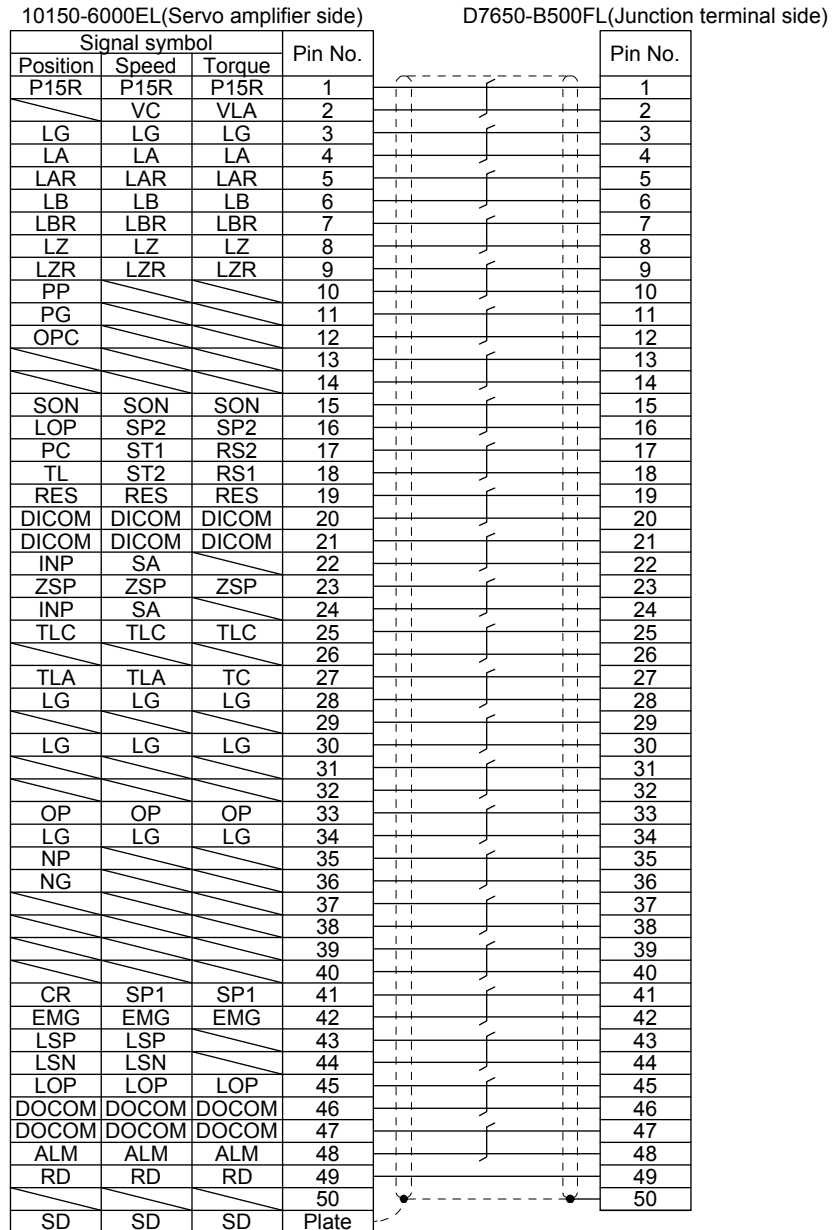 10150-6000EL(Servo amplifier side) D7650-B500FL(Junction terminal side)
Signal symbol Pin No. Pin No.
Position Speed Torque
P15R P15R P15R 1 1
VC VLA 2 2
LG LG LG 3 3
LA LA LA 4 4
LAR LAR LAR 5 5
LB LB LB 6 6
LBR LBR LBR 7 7
LZ LZ LZ 8 8
LZR LZR LZR 9 9
PP 10 10
PG 11 11
OPC 12 12
13 13
14 14
SON SON SON 15 15
LOP SP2 SP2 16 16
PC ST1 RS2 17 17
TL ST2 RS1 18 18
RES RES RES 19 19
DICOM DICOM DICOM 20 20
DICOM DICOM DICOM 21 21
INP SA 22 22
ZSP ZSP ZSP 23 23
INP SA 24 24
TLC TLC TLC 25 25
26 26
TLA TLA TC 27 27
LG LG LG 28 28
29 29
LG LG LG 30 30
31 31
32 32
OP OP OP 33 33
LG LG LG 34 34
NP 35 35
NG 36 36
37 37
38 38
39 39
40 40
CR SP1 SP1 41 41
EMG EMG EMG 42 42
LSP LSP 43 43
LSN LSN 44 44
LOP LOP LOP 45 45
DOCOM DOCOM DOCOM 46 46
DOCOM DOCOM DOCOM 47 47
ALM ALM ALM 48 48
RD RD RD 49 49
50 50
SD SD SD Plate